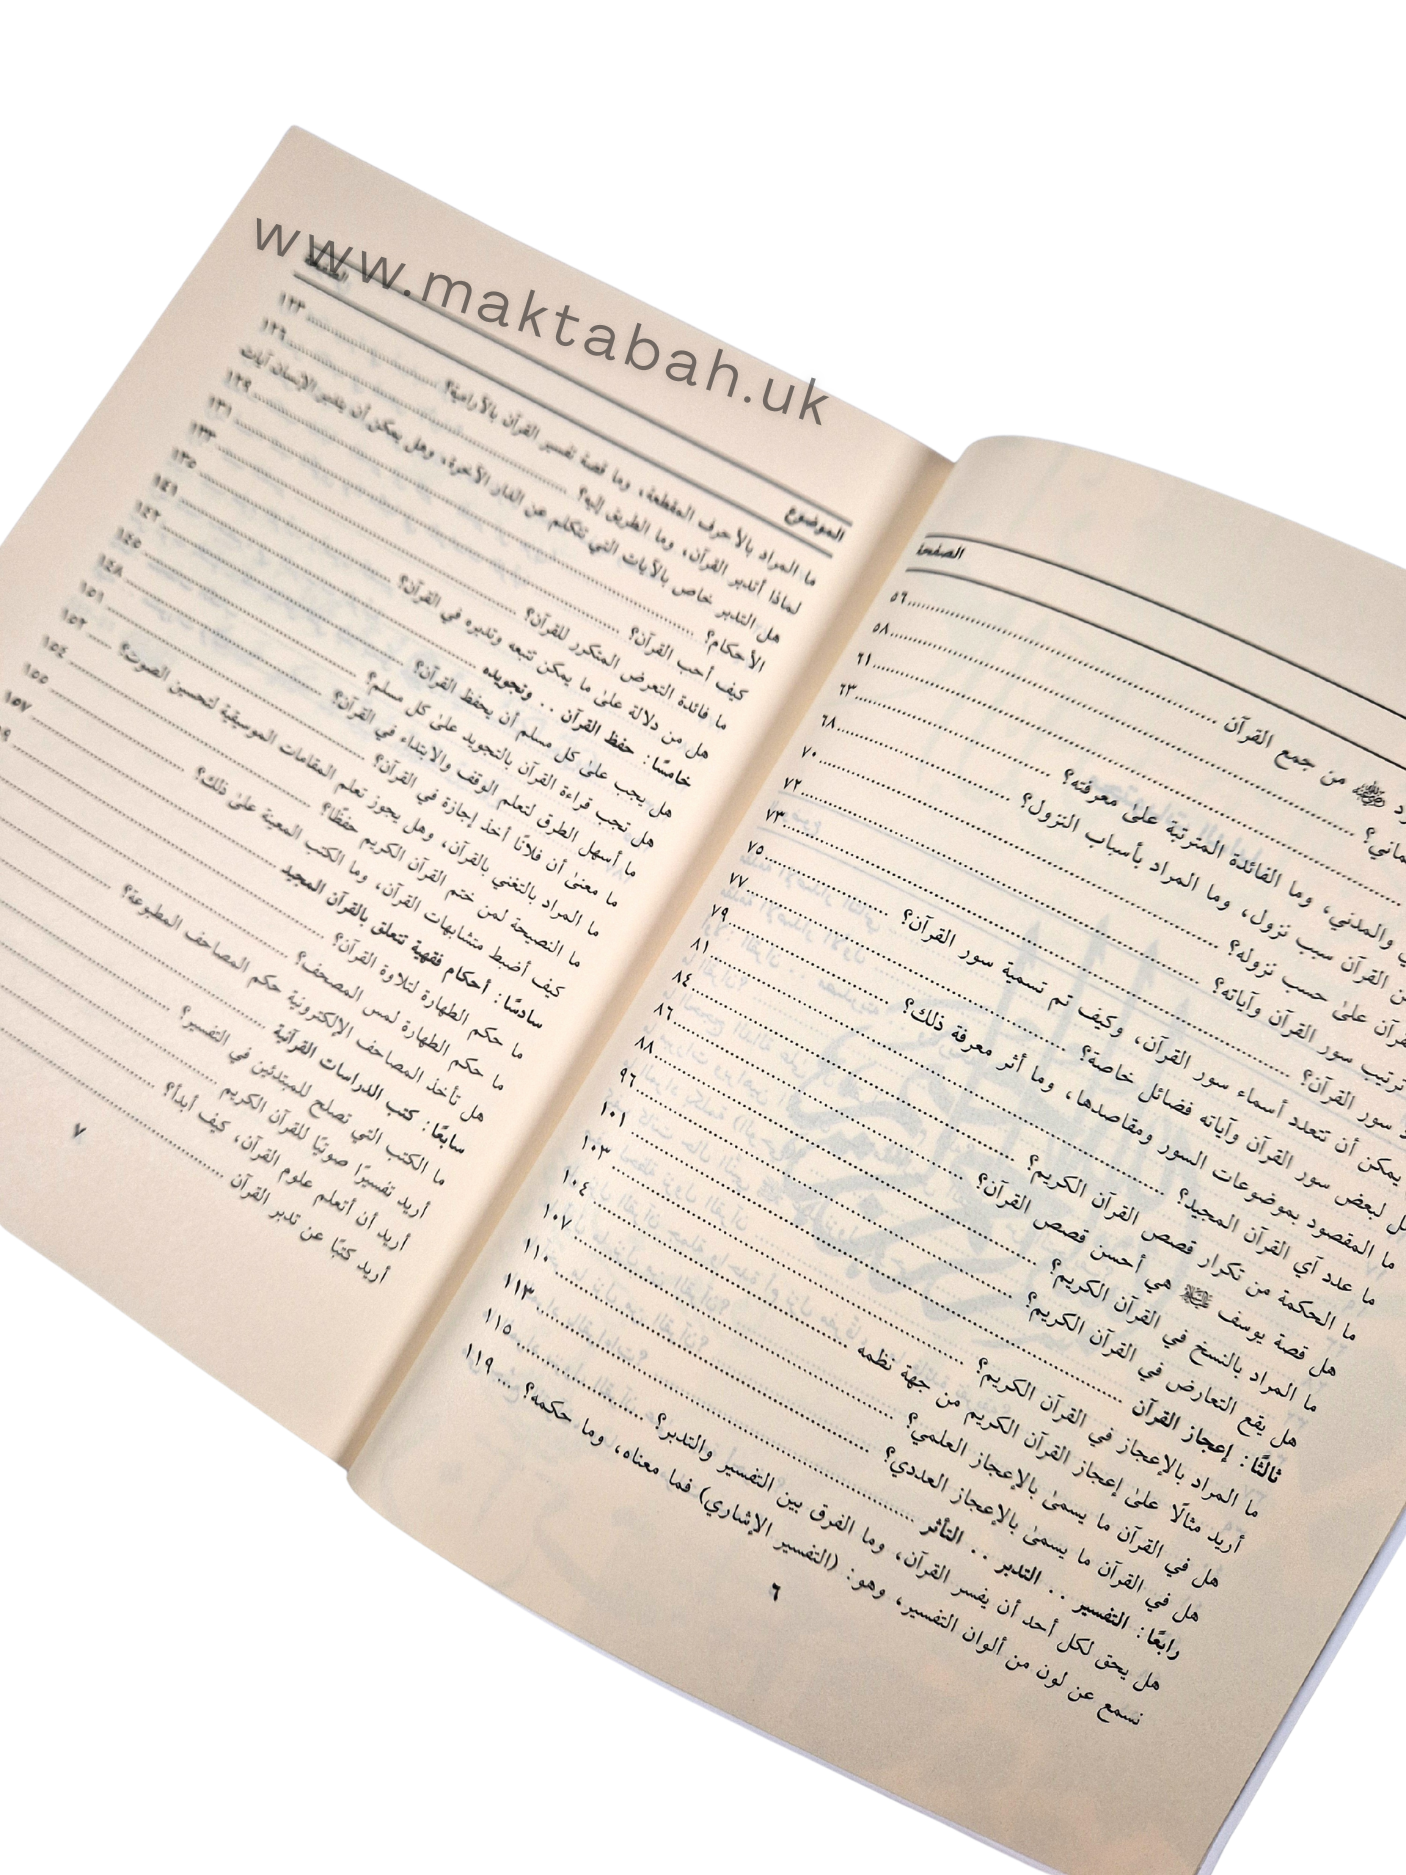 www.maktabah.uk
الصفحة
من جمع القرآن ٥٦
٥٨
والمدني، وما الفائدة المترتبة علىٰ معرفته؟ ٦١
القرآن سبب نزول، وما المراد بأسباب النزول؟ ٦٣
علىٰ حسب نزوله؟ ٦٨
ترتيب سور القرآن وآياته؟ ٧٠
سور القرآن؟ ٧٢
يمكن أن تتعدد أسماء سور القرآن، وكيف تم تسمية سور القرآن؟ ٧٣
لبعض سور القرآن وآياته فضائل خاصة؟ ٧٥
ما المقصود بموضوعات السور ومقاصدها، وما أثر معرفة ذلك؟ ٧٧
ما عدد آي القرآن المجيد؟ ٧٩
ما الحكمة من تكرار قصص القرآن الكريم؟ ٨١
هل قصة يوسف ﷺ هي أحسن قصص القرآن؟ ٨٤
ما المراد بالنسخ في القرآن الكريم؟ ٨٦
هل يقع التعارض في القرآن الكريم؟ ٨٨
ثالثًا: إعجاز القرآن ٩٦
ما المراد بالإعجاز في القرآن الكريم؟ ١٠١
أريد مثالًا علىٰ إعجاز القرآن الكريم من جهة نظمه ١٠٣
هل في القرآن ما يسمىٰ بالإعجاز العلمي؟ ١٠٤
هل في القرآن ما يسمىٰ بالإعجاز العددي؟ ١٠٧
رابعًا: التفسير .. التدبر .. التأثر ١١٠
هل يحق لكل أحد أن يفسر القرآن، وما الفرق بين التفسير والتدبر؟ ١١٥
نسمع عن لون من ألوان التفسير، وهو: (التفسير الإشاري) فما معناه، وما حكمه؟ ١١٩
٦
الموضوع
ما المراد بالأحرف المقطعة، وما قصة تفسير القرآن بالآرامية؟ ١٢٣
لماذا أتدبر القرآن، وما الطريق إليه؟ ١٢٦
هل التدبر خاص بالآيات التي تتكلم عن الدار الآخرة، وهل يمكن أن يتدبر الإنسان آيات
الأحكام؟ ١٢٩
كيف أحب القرآن؟ ١٣١
ما فائدة التعرض المتكرر للقرآن؟ ١٣٣
هل من دلالة علىٰ ما يمكن تتبعه وتدبره في القرآن؟ ١٣٥
خامسًا: حفظ القرآن .. وتجويده ١٤١
هل يجب علىٰ كل مسلم أن يحفظ القرآن؟
هل تجب قراءة القرآن بالتجويد علىٰ كل مسلم؟
ما أسهل الطرق لتعلم الوقف والابتداء في القرآن؟
ما معنىٰ أن فلانًا أخذ إجازة في القرآن؟
ما المراد بالتغني بالقرآن، وهل يجوز تعلم المقامات الموسيقية لتحسين الصوت؟
ما النصيحة لمن ختم القرآن الكريم حفظًا؟
كيف أضبط متشابهات القرآن، وما الكتب المعينة علىٰ ذلك؟
سادسًا: أحكام فقهية تتعلق بالقرآن المجيد
ما حكم الطهارة لتلاوة القرآن؟
ما حكم الطهارة لمس المصحف؟
هل تأخذ المصاحف الإلكترونية حكم المصاحف المطبوعة؟
سابعًا: كتب الدراسات القرآنية
ما الكتب التي تصلح للمبتدئين في التفسير؟
أريد تفسيرًا صوتيًا للقرآن الكريم
أريد أن أتعلم علوم القرآن، كيف أبدأ؟
أريد كتبًا عن تدبر القرآن
٧